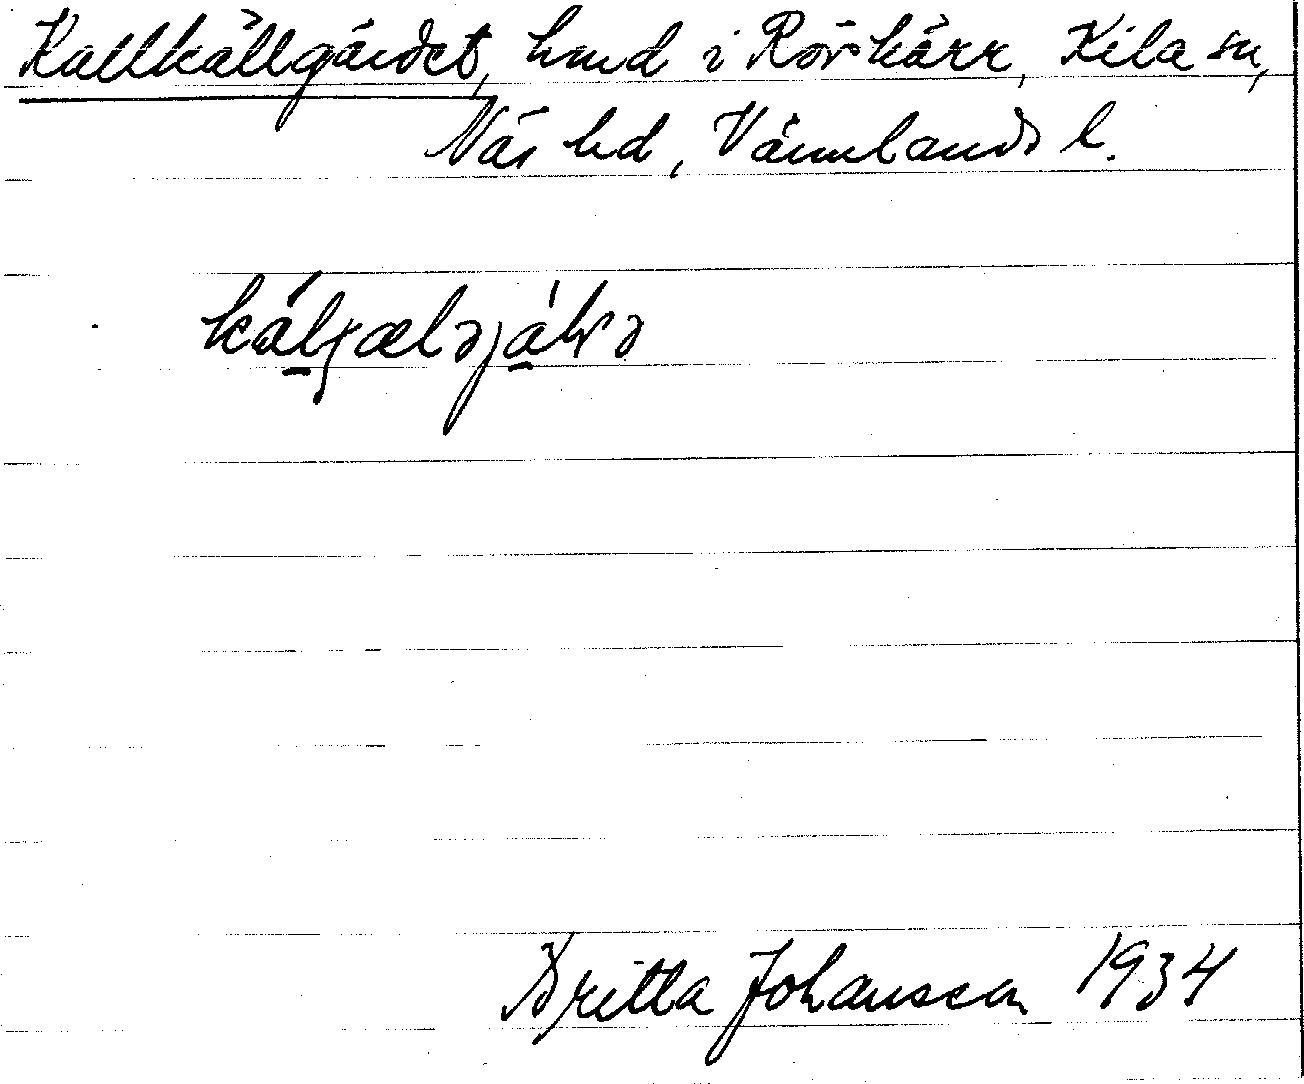 Kallkällgärdet, hmd i Rörkärr, Kila sn,
Näs hd, Värmlands l.
Britta Johansson 1934